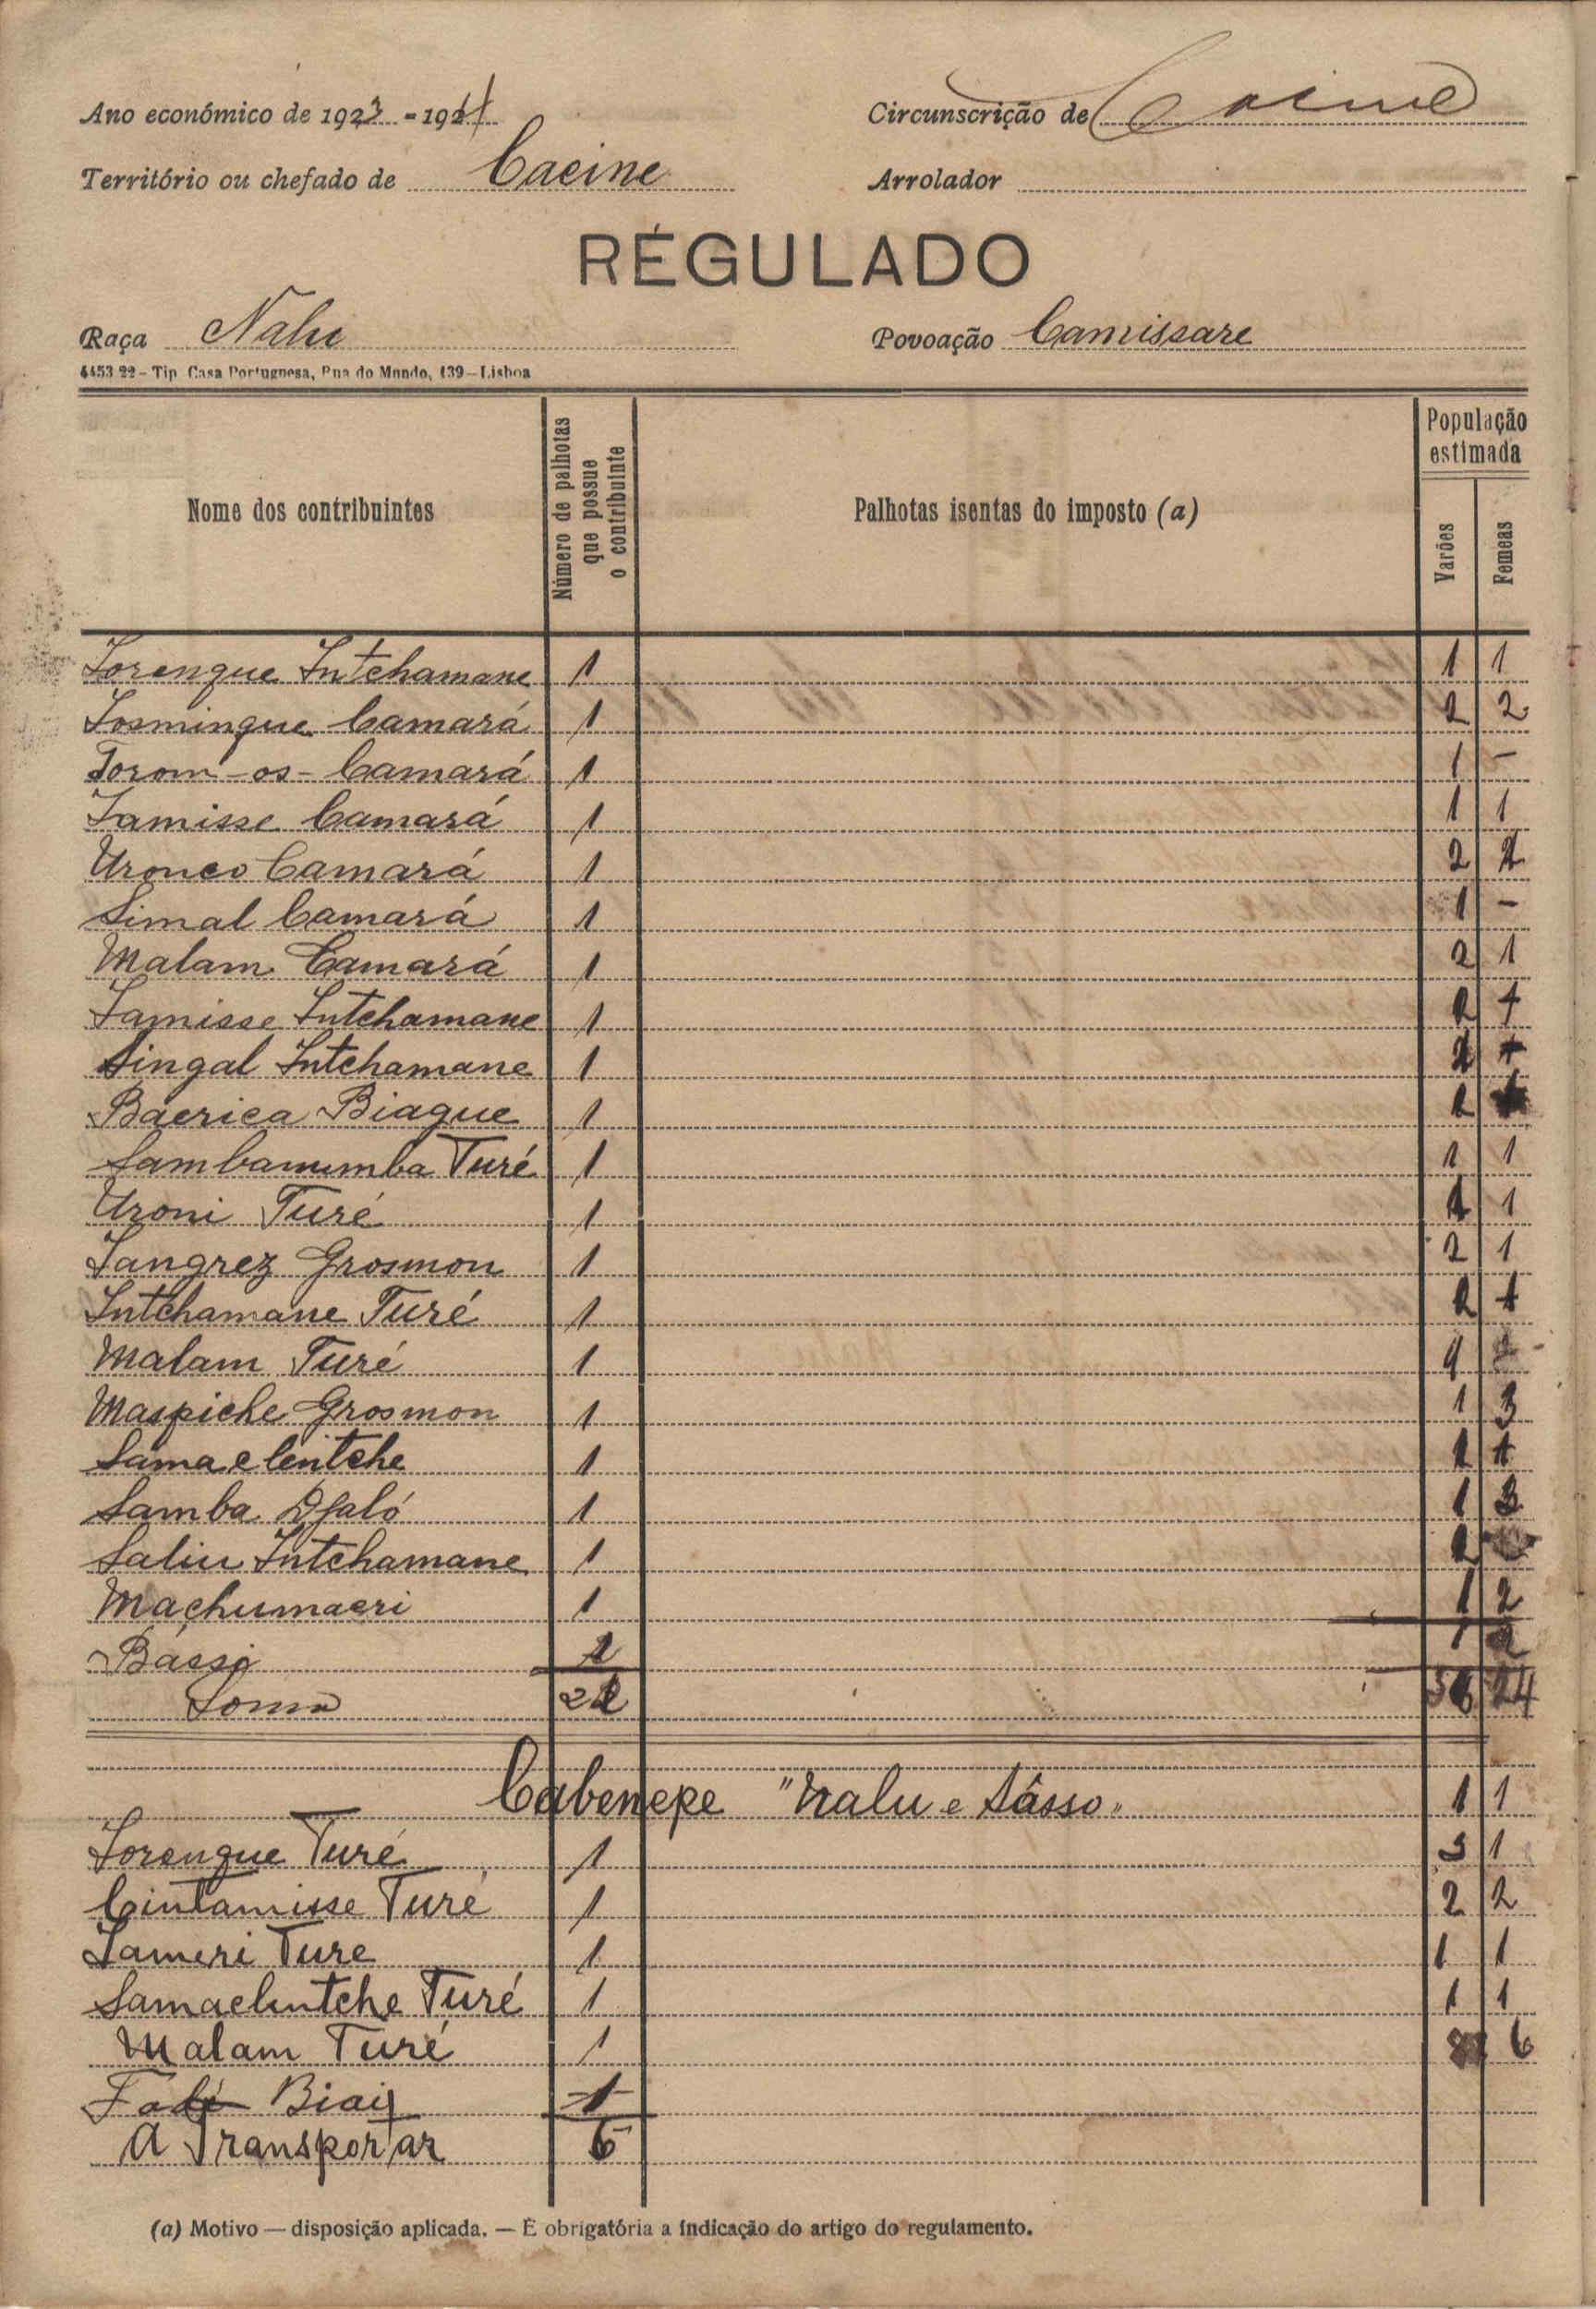 Ano económico de 1923 - 1924 Circunscrição de Cacine
Território ou chefado de Cacine Arrolador
REGULADO
Raça Nalu Povoação Camissare
4453 22 - Tip. Casa Portuguesa, Rua do Mundo, 139 - Lisboa
Nome dos contribuintes Número de palhotas que possue o contribuinte Palhotas isentas do imposto (a) População estimada Varões Femeas
Lorengue Intchamane 1 1 1
Losmingue Camará 1 2 2
Torom-os-Camará 1 1 -
Lamisse Camará 1 1 1
Uronco Camará 1 2
Simal Camará 1 1 -
Malam Camará 1 2 1
Lamisse Intchamane 1 2 1
Singal Intchamane 1
Bacrica Biague 1 2
Sambanumba Turé 1 1 1
Uroni Turé 1 1 1
Tangrez Grosmon 1 2 1
Intchamane Turé 1 2 1
Malam Turé 1
Maspiche Grosmon 1 1 3
Samaclentche 1 1
Samba Djaló 1 1 3
Saliu Intchamane 1 2
Machumacri 1 1 2
Bassi 1 2
Soma
Cabenepe "Nalu e Sôsso" 1 1
Lorengue Turé 1 3 1
Cintamisse Turé 1 2 2
Lameri Ture 1 1 1
Samaclintche Turé 1 1 1
Malam Turé 1 6
Biai 1
A Transportar 6
(a) Motivo — disposição aplicada. — É obrigatória a indicação do artigo do regulamento.